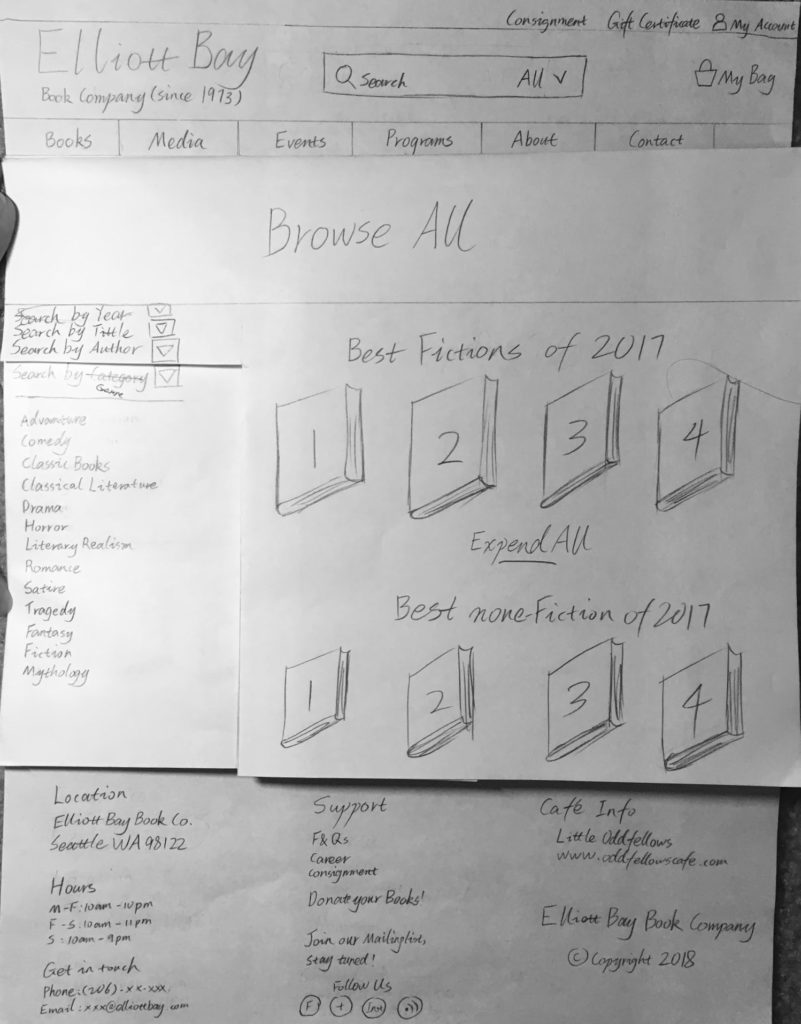 Consignment Gift Certificate My Account
Elliott Bay
Book Company (since 1973)
Search All
My Bag
Books Media Events Programs About Contact
Browse All
Search by Year
Search by Tittle
Search by Author
Search by Category
Genre
Advanture
Comedy
Classic Books
Classical Literature
Drama
Horror
Literary Realism
Romance
Satire
Tragedy
Fantasy
Fiction
Mythology
Best Fictions of 2017
1 2 3 4
Expend All
Best none-Fiction of 2017
1 2 3 4
Location
Elliott Bay Book Co.
Seattle WA 98122
Hours
M-F: 10am-10pm
F-S: 10am-11pm
S: 10am-9pm
Get in touch
Phone: (206)-xx-xxx
Email: xxx@elliottbay.com
Support
F&Qs
Career
Consignment
Donate your Books!
Join our Mailinglist,
Stay tuned!
Follow Us
F + Inst
Café Info
Little Oddfellows
www.oddfellowscafe.com
Elliott Bay Book Company
©Copyright 2018